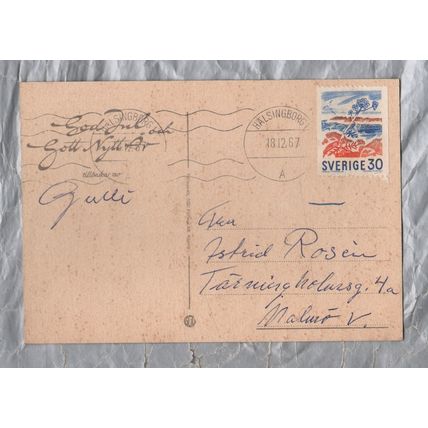 God Jul och
Gott Nytt År
tillönskar av
Gulli
HÄLSINGBORG 1
HÄLSINGBORG 1
18.12.67
A
SVERIGE 30
Fru
Astrid Rosén
4a
Malmö V.